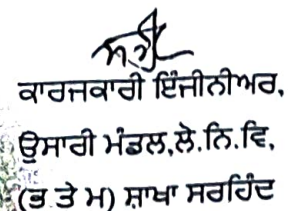 ਸਹੀ/-
ਕਾਰਜਕਾਰੀ ਇੰਜੀਨੀਅਰ,
ਉਸਾਰੀ ਮੰਡਲ,ਲੋ.ਨਿ.ਵਿ,
(ਭ ਤੇ ਮ) ਸ਼ਾਖਾ ਸਰਹਿੰਦ